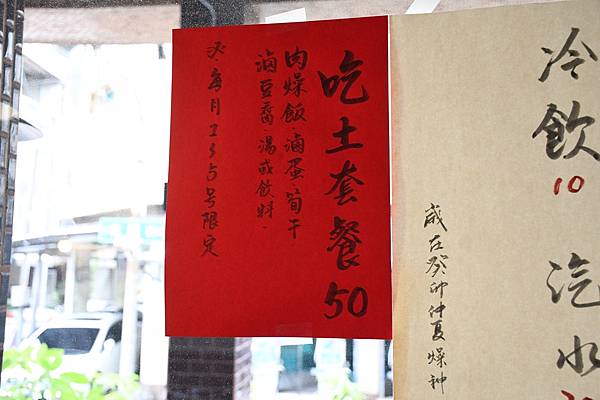 吃土套餐50
肉燥飯·滷蛋·筍干
滷豆腐·湯或飲料·
每月25號限定
冷飲10
汽水
歲在癸卯仲夏燥神